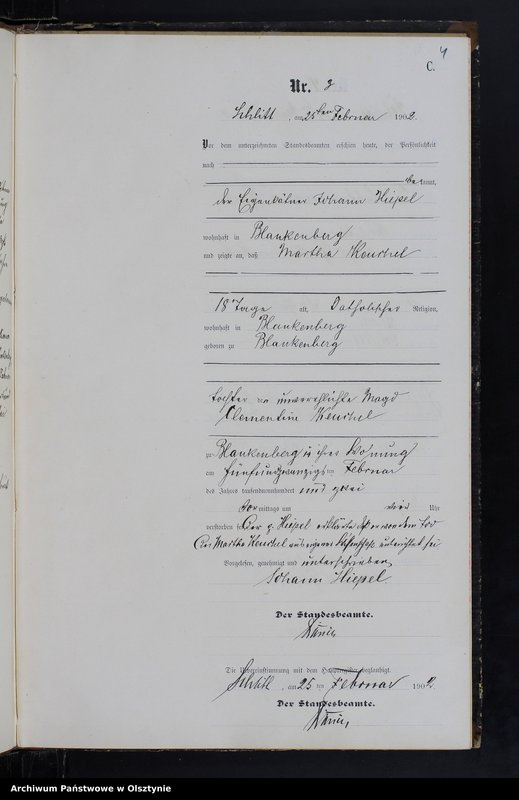 C. 4
Nr. 8
Schlitt, am 25ten Februar 1902.
Vor dem unterzeichneten Standesbeamten erschien heute, der Persönlichkeit
nach
bekannt,
der Eigenkätner Johann Hiepel
wohnhaft in Blankenberg
und zeigte an, daß Martha Keuchel
18 Tage alt, Catholischer Religion,
wohnhaft in Blankenberg
geboren zu Blankenberg
Tochter der unverehlichte Magd
Clementine Keuchel
zu Blankenberg in ihrer Wohnung
am fünfundzwanzigsten Februar
des Jahres tausendneunhundert und zwei
Vormittags um vier Uhr
verstorben sei. Der p. Hiepel erklärte daß er von dem Tod
der Martha Keuchel aus eigener Wissenschaft unterrichtet sei
Vorgelesen, genehmigt und unterschrieben
Johann Hiepel.
Der Standesbeamte.
Die Übereinstimmung mit dem Hauptregister beglaubigt.
Schlitt, am 25 ten Februar 1902.
Der Standesbeamte.
Archiwum Państwowe w Olsztynie